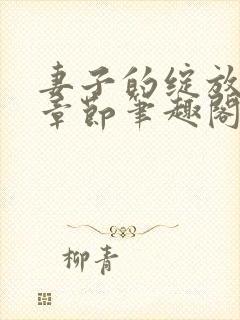 妻子的绽放
章节笔趣阁
柳青